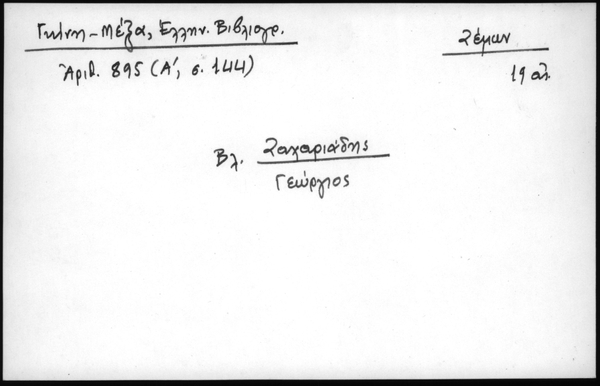 Γκίνη-Μέξα, Ἑλλην. Βιβλιογρ.
Ἀριθ. 895 (Α΄, σ. 144)
Ζέμων
19 αἰ.
Βλ. Ζαχαριάδης
Γεώργιος